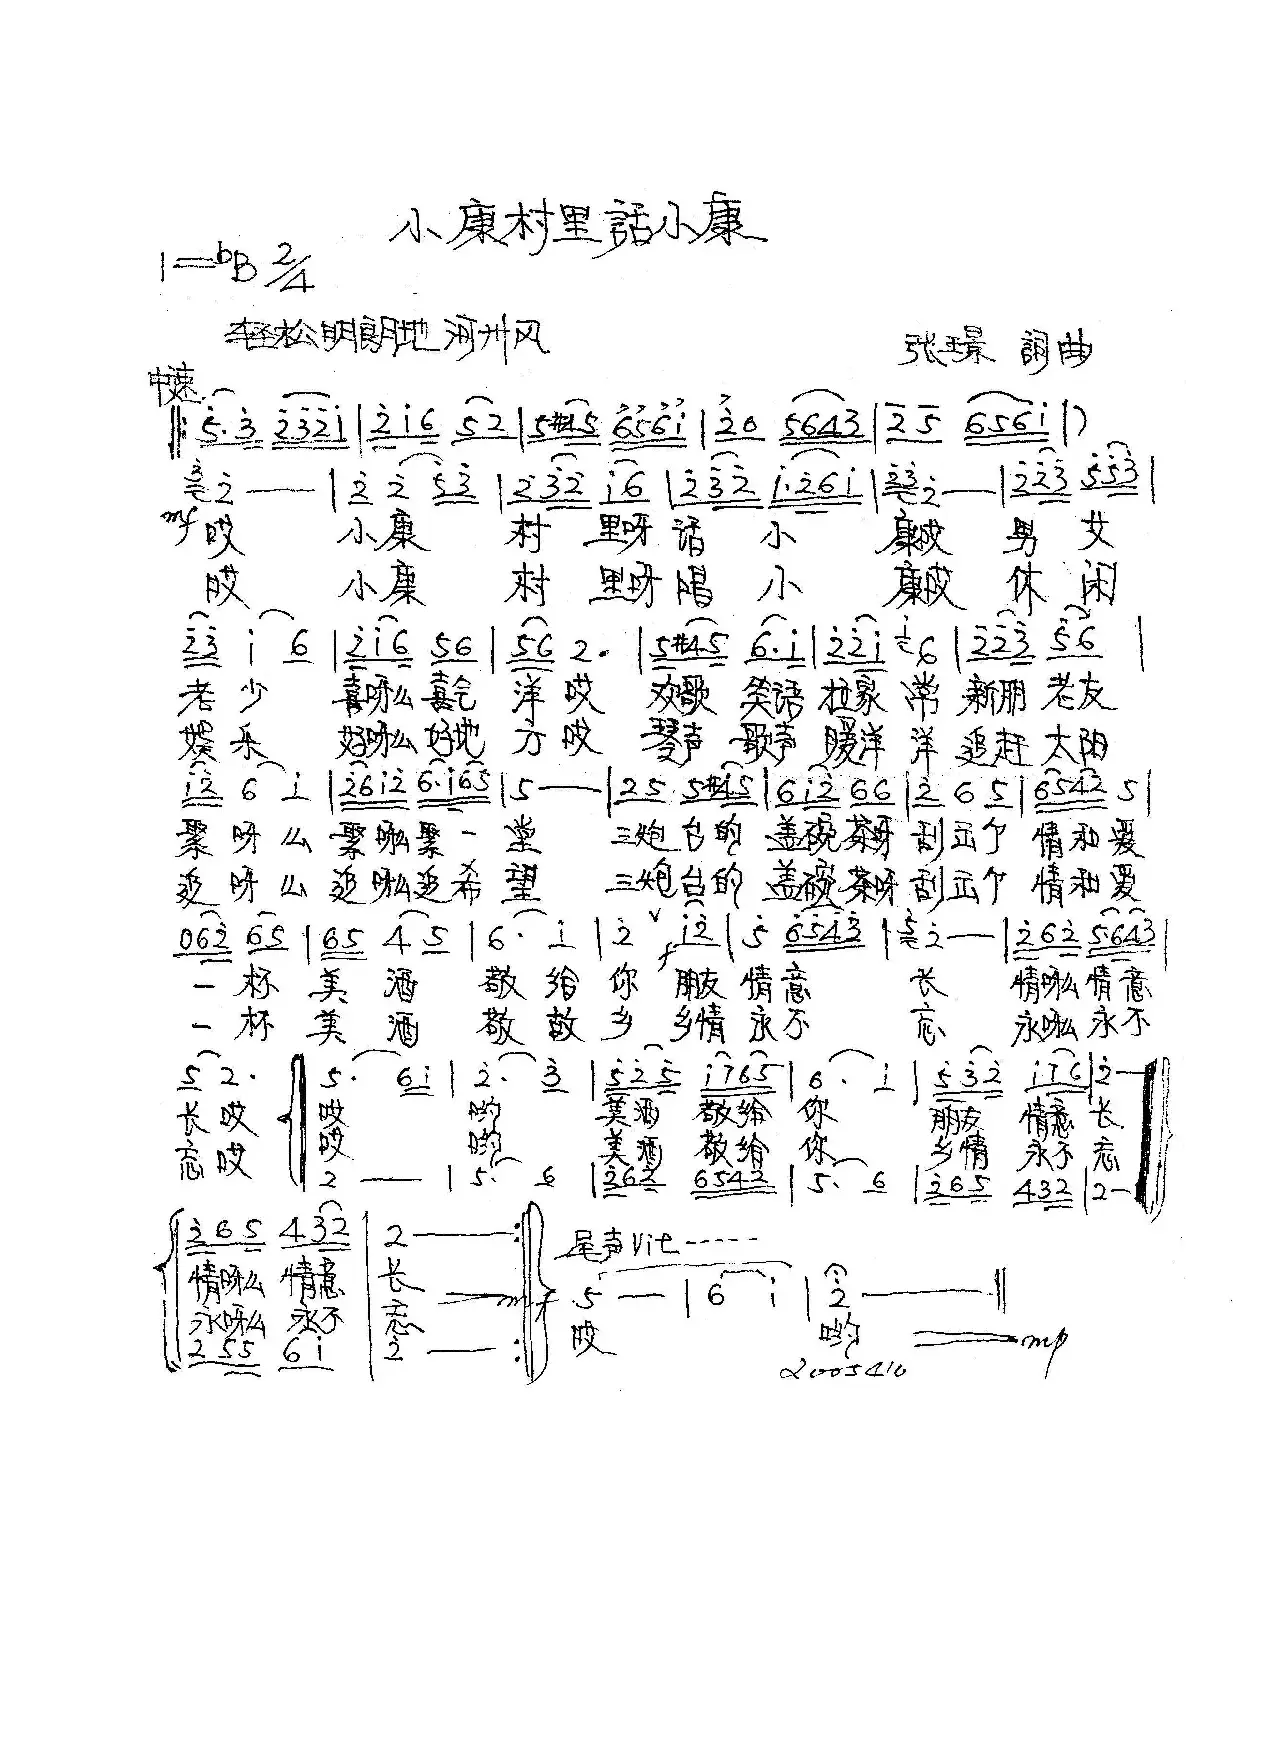 小康村里話小康
1=bB 2/4
轻松明朗地 河州风
张璟 詞曲
中速
5·3 2321 | 216 52 | 5#45 6561 | 20 5643 | 25 6561 | )
2 —— | 2 2 53 | 2·32 16 | 232 1·261 | 2 — | 223 553 |
mf 哎 小康 村 里呀 话 小 康哎 男 女
哎 小康 村 里呀 唱 小 康哎 休 闲
23 1 6 | 216 56 | 56 2· | 5#45 6·1 | 221 6 | 223 56 |
老 少 喜呀么 喜气 洋 哎 欢歌 笑语 拉家 常 新朋 老友
娱 乐 好呀么 好地 方 哎 琴声 歌声 暖洋 洋 追赶 太阳
12 6 1 | 2612 6·165 | 5 —— | 25 5#45 | 612 66 | 2 6 5 | 6542 5 |
聚 呀 么 聚呀么聚 一 堂 三炮 台的 盖碗茶呀 刮 出个 情和 爱
追 呀 么 追呀么追 希 望 三炮 台的 盖碗茶呀 刮 出个 情和 爱
062 65 | 65 4 5 | 6· 1 | 2 v 12 | 5 6543 | 2 — | 262 5643 |
f
一 杯 美 酒 敬 给 你 朋友 情 意 长 情呀么 情意
一 杯 美 酒 敬 故 乡 乡情 永 不 忘 永呀么 永不
5 2· 5· 61 | 2· 3 | 525 1765 | 6· 1 | 532 176 | 2 —
长 哎 哎 哟 美酒 敬给 你 朋友 情意 长
忘 哎 哎 哟 美酒 敬给 你 乡情 永不 忘
2 —— | 5· 6 | 262 6542 | 5· 6 | 265 432 | 2 —
265 432 | 2 —— : 尾声 Vit -----
情呀么 情意 长 mf 5 — | 6 1 | 2 —— ‖
永呀么 永不 忘 哎 哟 mp
255 61 | 2 — :
2005410